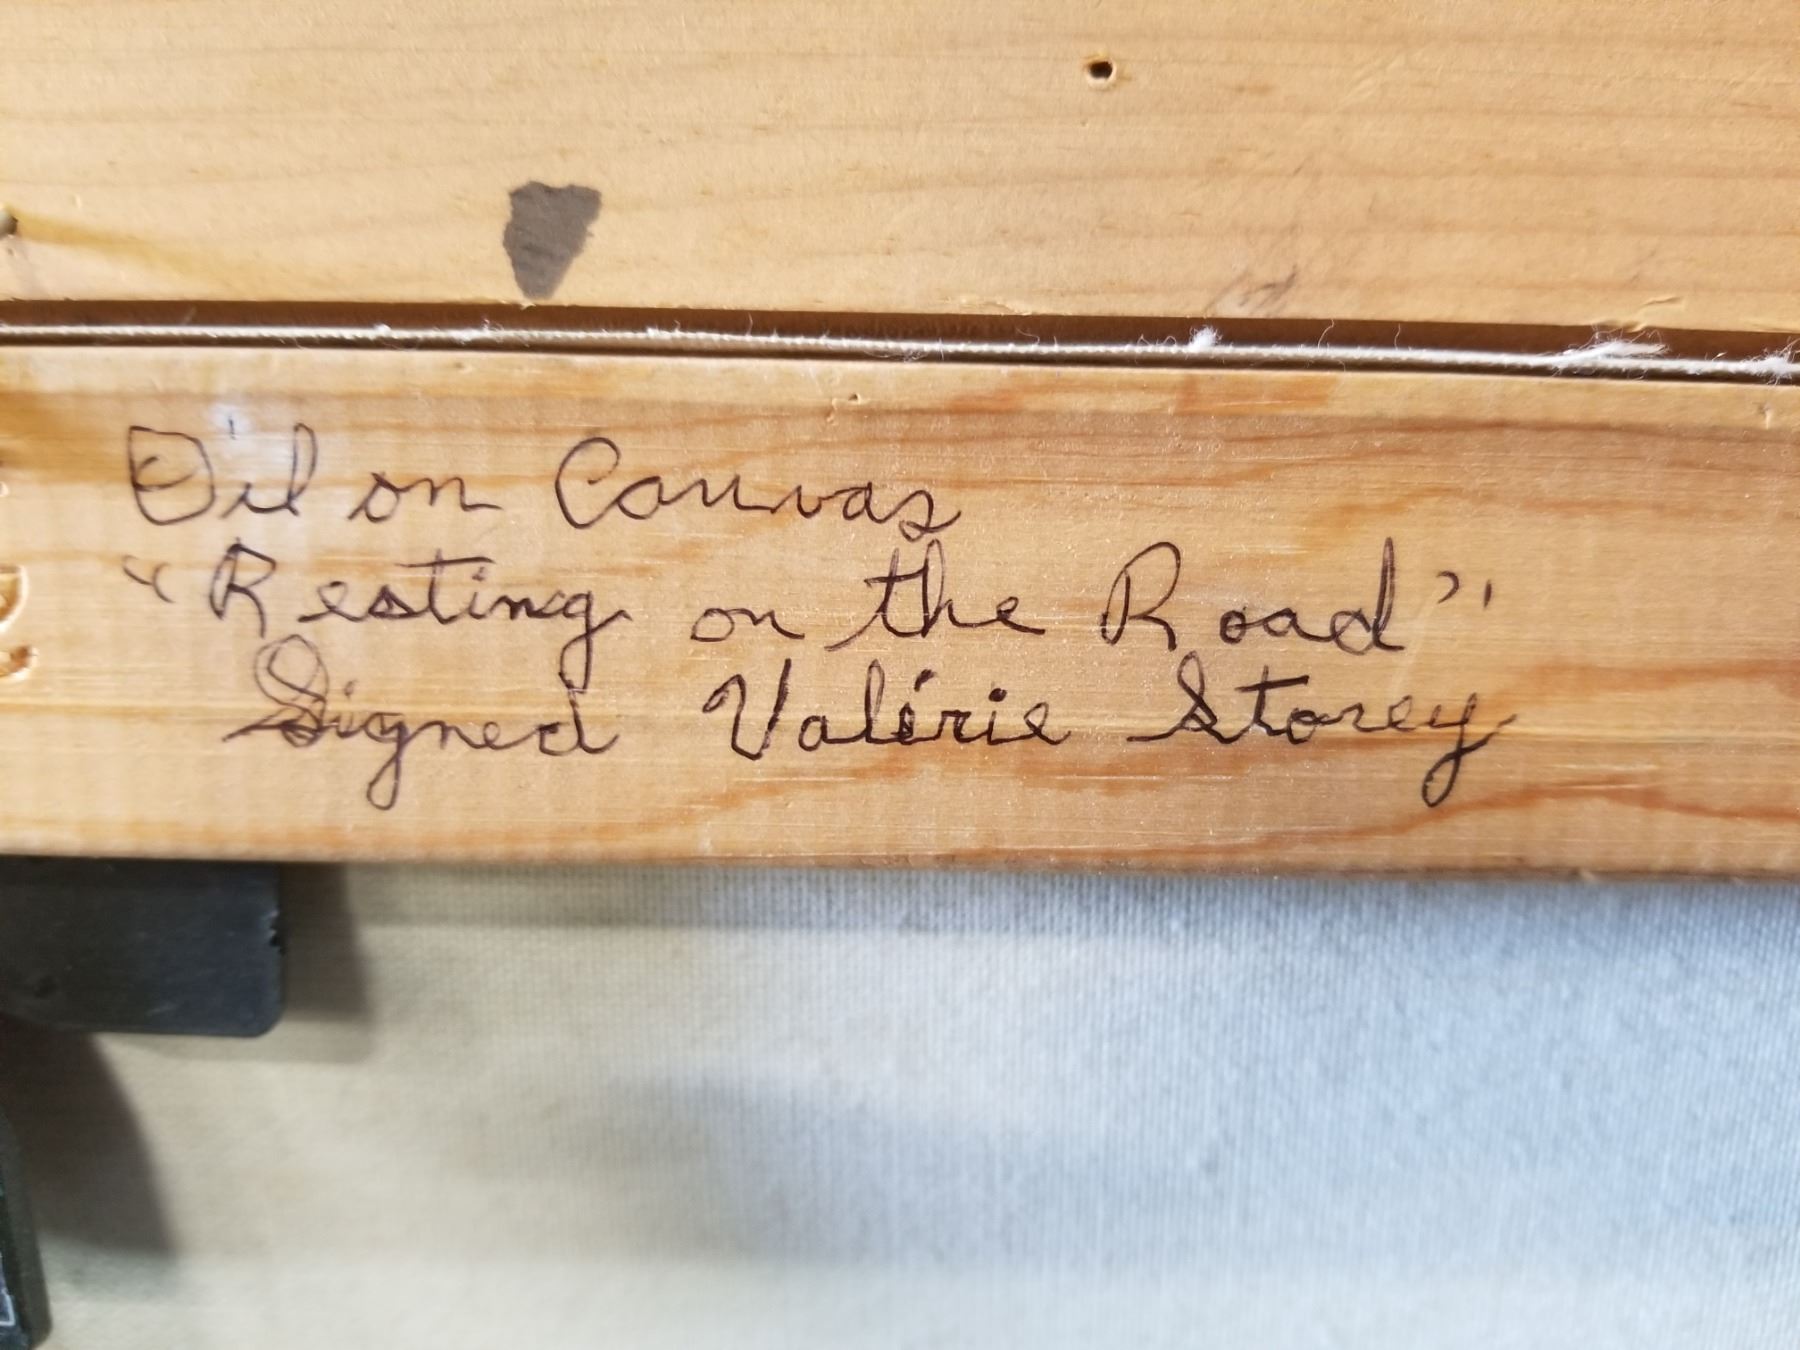 Oil on Canvas
"Resting on the Road"
Signed Valérie Storey